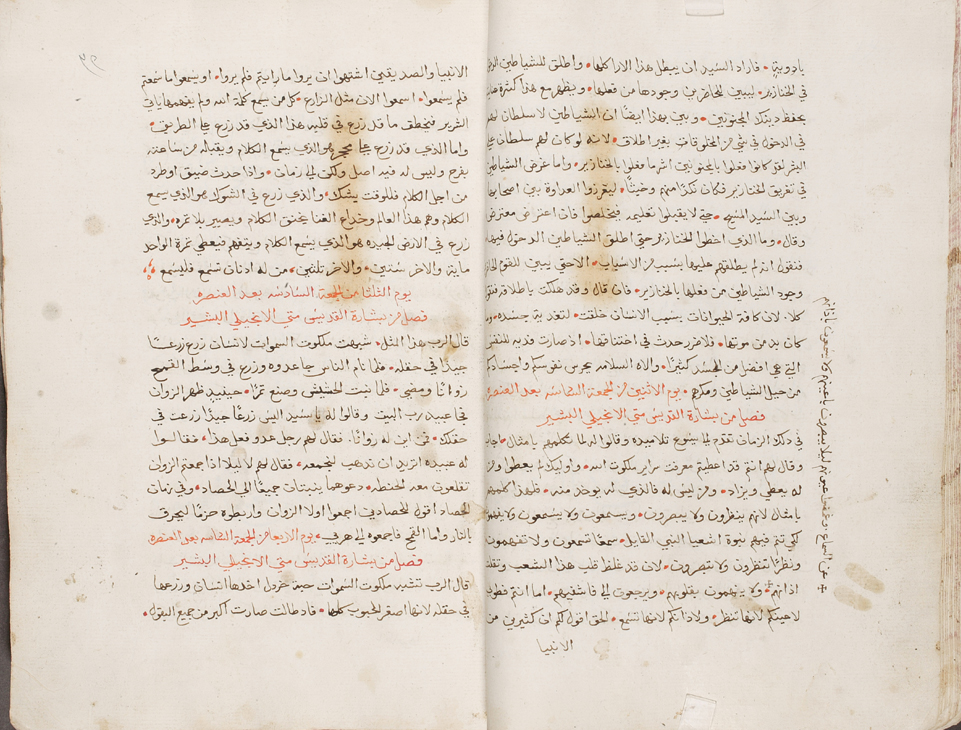 بادويته. فاراد السيد ان يبطل هذا الارا كلها. واطلق للشياطين الدخول
في الخنازير. ليبين للحاضرين وجودها من فعلها. ويظهر مع هذا كثرة عنايته
بحفظ دينك المجنونين. وبين بهذا ايضًا ان الشياطين لا سلطان لهم
في الدخول في شي من المخلوقات بغير اطلاق. لانه لو كان لهم سلطان علي
البشر لقد كانوا فعلوا بالمجنونين اشر ما فعلوا بالخنازير. واما غرض الشياطين
في تغريق الخنازير فكان نكرًا منهم وخبثًا. ليغرزوا العداوة بين اصحابها
وبين السيد المسيح. حتي لا يقبلوا تعليمه فيخلصوا فان اعتراض معترض
وقال. وما الذي اخطوا الخنازير حتي اطلق الشياطين الدخول فيها
فنقول انه لم يطلقهم عليها بسبب من الاسباب. الا حتي يبين للقوم
وجود الشياطين من فعلها بالخنازير. فان قال وقد هلكت باطلاقه فنقول
كلا. لان كافة الحيوانات بسبب الانسان خلقت. لتغدية جسده.
كان بد من موتها. فلا ضرر حدث في اختناقها. اذ صارت فديه للنفس
التي هي افضل من الجسد كثيرًا. والاه السلامه يحرس نفوسكم واجسادكم
من حيل الشياطين ومكرهم. يوم الاثنين من الجمعة السادسه بعد العنصره
فصل من بشارة القديس متي الانجيلي البشير
في ذلك الزمان تقدم الي يسوع تلاميده وقالوا له لما تكلمهم بامثال. فاجاب
وقال لهم انتم قد اعطيتم معرفت سراير ملكوت الله. واوليك لم يعطوا ومن
له يعطي ويزاد. ومن ليس له فالذي له يوخد منه. فلهذا اكلمهم
بامثال لانهم ينظرون ولا يبصرون. ويسمعون ولا يسمعون ولا يفهمون
لكي تتم فيهم نبوة اشعيا النبي القايل. سمعًا تسمعون ولا تفهمون
ونظرًا تنظرون ولا تبصرون. لان قد غلظ قلب هذا الشعب وثقلت
اذانهم ولا يفهمون بقلوبهم. ويرجعون الي فاشفيهم. اما انتم فطوبا
لاعينكم لانها تنظر. ولاذانكم لانها تسمع. الحق اقول لكم ان كثيرين من
الانبيا
عن السماع وغمضوا عيونهم ليلا يبصرون باعينهم ولا يسمعون باذانهم
٣٩
الانبيا والصديقين اشتهوا ان يروا ما رايتم فلم يروا. او يسمعوا ما سمعتم
فلم يسمعوا. اسمعوا الان مثل الزارع. كل من يسمع كلمة الله ولم يفهمها ياتي
الشرير فيخطف ما قد زرع في قلبه هذا الذي قد زرع علي الطريق.
واما الذي قد زرع علي حجر هو الذي يسمع الكلام ويقبله من ساعته
بفرح وليس له فيه اصل ولكن الي زمان. واذا حدث ضيق او طرد
من اجل الكلام فللوقت يشك. والذي زرع في الشوك هو الذي يسمع
الكلام وهم هذا العالم وخداع الغنا يخنق الكلام ويصير بلا ثمره. والذي
زرع في الارض الجيده هو الذي يسمع الكلام ويتفهم فيعطي ثمرة الواحد
مايه. والاخر ستين. والاخر ثلثين. من له اذنان تسمع فليسمع
يوم الثلثا من الجمعة السادسه بعد العنصره
فصل من بشارة القديس متي الانجيلي البشير
قال الرب هذا المثل. شبهت ملكوت السموات لانسان زرع زرعًا
جيدًا في حقله. فلما نام الناس جا عدوه وزرع في وسط القمح
زوانًا ومضي. فلما نبت الحشيش وصنع ثمرًا. حينيد ظهر الزوان
فجا عبيد رب البيت وقالوا له يا سيد اليس زرعًا جيدًا زرعت في
حقلك. فمن اين له زوانًا. فقال لهم رجل عدو فعل هذا. فقالوا
له عبيده اتريد ان ندهب لنجمعه. فقال لهم لا ليلا اذا جمعتم الزوان
تقلعون معه الحنطه. دعوهما ينبتان جميعًا الي الحصاد. وفي زمان
الحصاد اقول للحصادين اجمعوا اولا الزوان واربطوه حزمًا ليحرق
بالنار واما القمح فاجمعوه الي هريي. يوم الاربعا من الجمعة السادسه بعد العنصره
فصل من بشارة القديس متي الانجيلي البشير
قال الرب تتشبه ملكوت السموات حبة خردل اخدها انسان وزرعها
في حقله لانها اصغر الحبوب كلها. فادا طالت صارت اكبر من جميع البقول.